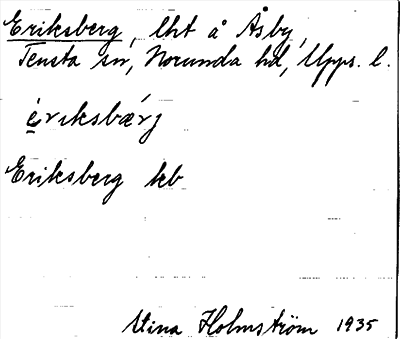 Eriksberg, lht å Åsby,
Tensta sn, Norunda hd, Upps. l.
é̱rıksbærj
Eriksberg kb
Stina Holmström 1935